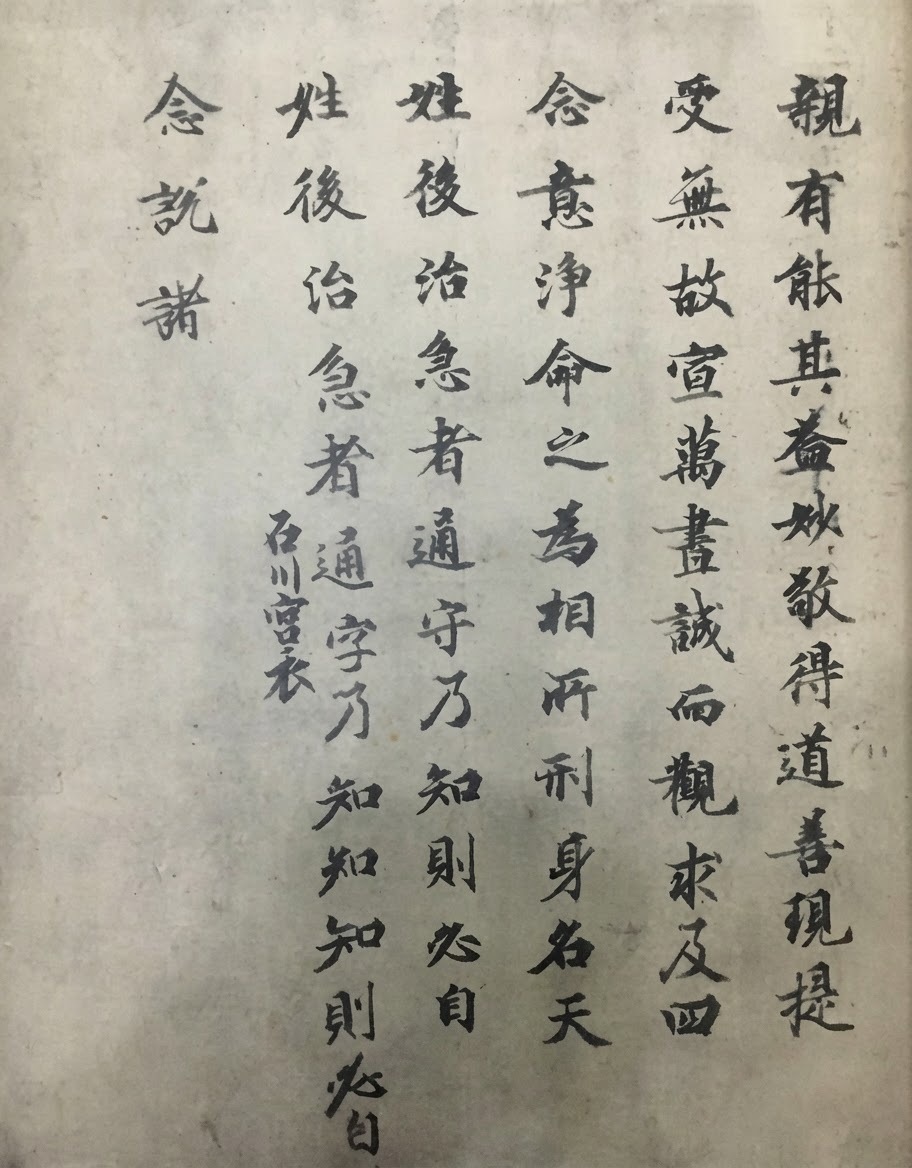 親有能其益妙敬得道善現提
受無故宣萬晝誠而觀求及四
念意淨命之為相所刑身名天
姓後治急者通守乃知則必自
姓後治急者通字乃知知知則必自
石川宮衣
念説諸